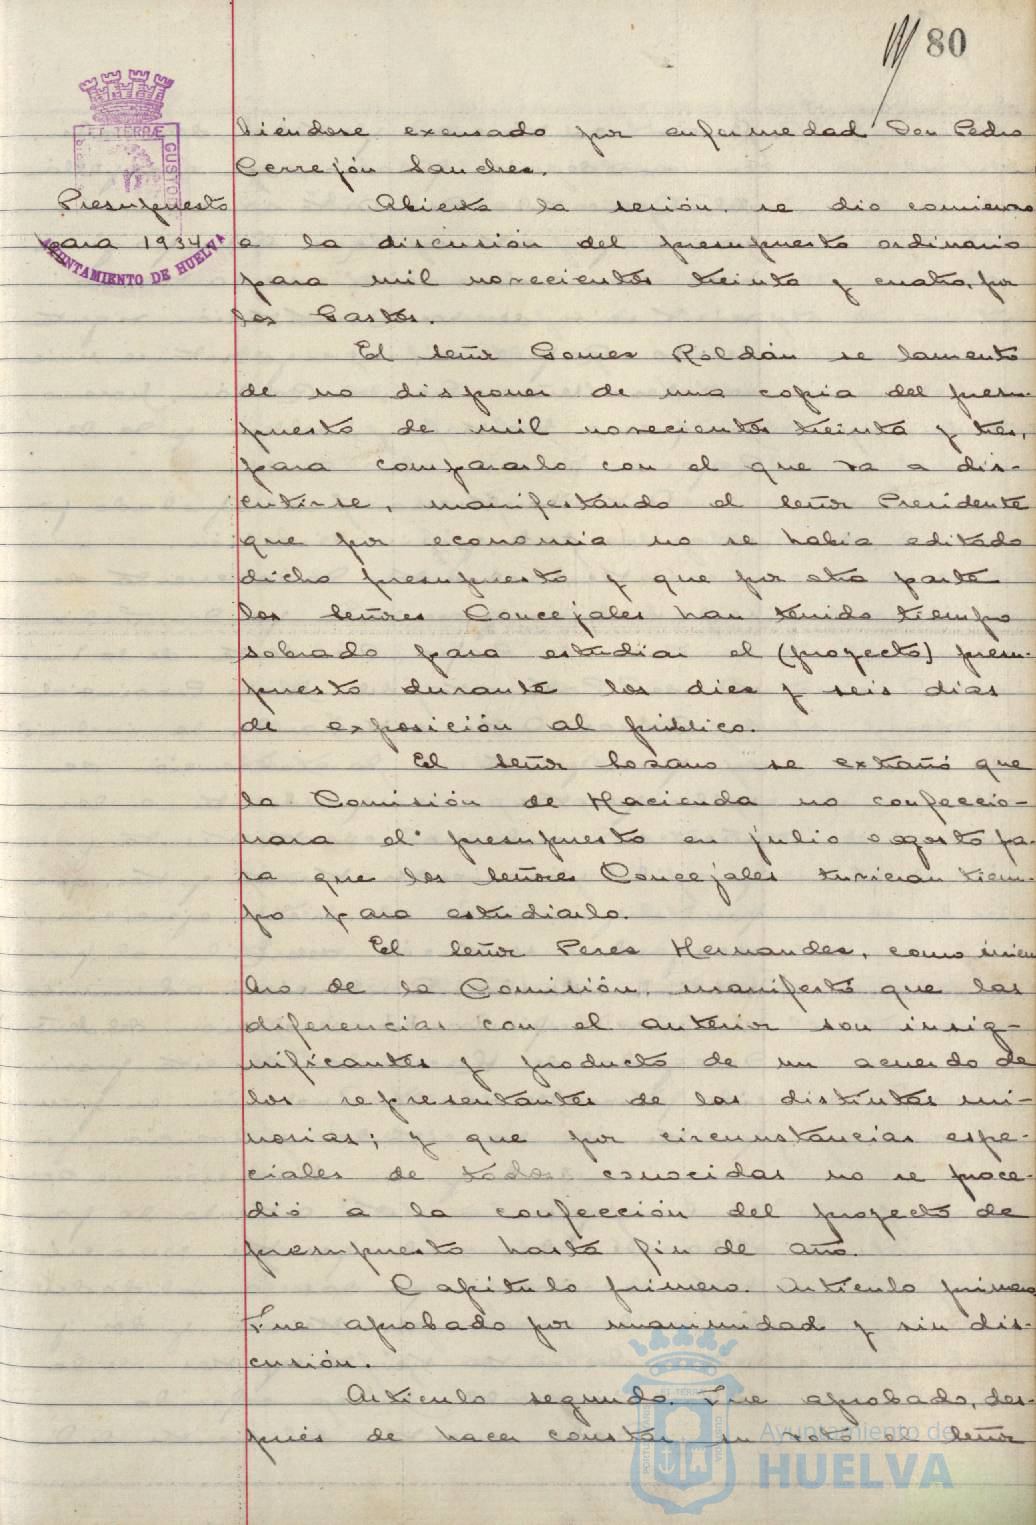 80
biéndose excusado por enfermedad Don Pedro
Cerrejón Sanches.
Presupuesto
para 1934
Abierta la sesión, se dio comienzo
a la discusión del presupuesto ordinario
para mil novecientos treinta y cuatro, por
los Gastos.
El señor Gomes Roldán se lamentó
de no disponer de una copia del presu-
puesto de mil novecientos treinta y tres,
para compararlo con el que va a dis-
cutirse, manifestando el señor Presidente
que por economia no se habia editado
dicho presupuesto y que por otra parte
los señores Concejales han tenido tiempo
sobrado para estudiar el (proyecto) presu-
puesto durante los dies y seis dias
de exposición al público.
El señor Losano se extrañó que
la Comisión de Hacienda no confeccio-
nara el presupuesto en julio o agosto pa-
ra que los señores Concejales tuvieran tiem-
po para estudiarlo.
El señor Peres Hernandes, como miem
bro de la Comisión, manifestó que las
diferencias con el anterior son insig-
nificantes y producto de un acuerdo de
los representantes de las distintas mi-
norias; y que por circunstancias espe-
ciales de todos conocidas no se proce-
dió a la confección del proyecto de
presupuesto hasta fin de año.
Capitulo primero. Articulo primero
Fue aprobado por unanimidad y sin dis-
cusión.
Articulo segundo. Fue aprobado, des-
pués de hacer constar su voto el señor
ET TERRÆ CUSTODIA
AYUNTAMIENTO DE HUELVA
Ayuntamiento de
HUELVA